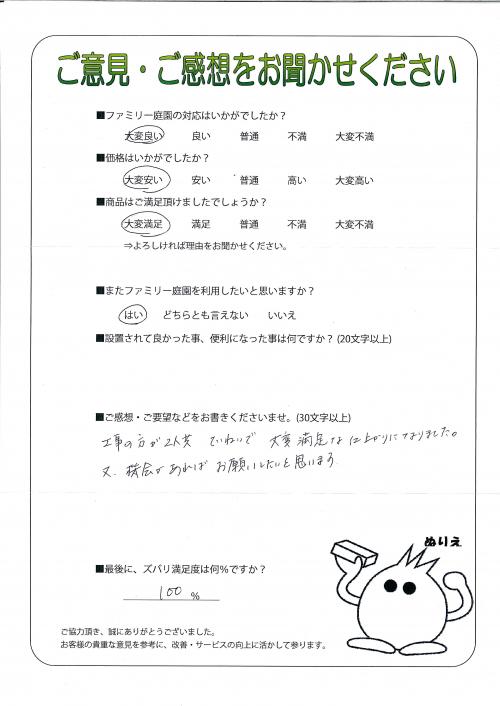 ご意見・ご感想をお聞かせください
■ファミリー庭園の対応はいかがでしたか？
大変良い 良い 普通 不満 大変不満
■価格はいかがでしたか？
大変安い 安い 普通 高い 大変高い
■商品はご満足頂けましたでしょうか？
大変満足 満足 普通 不満 大変不満
⇒よろしければ理由をお聞かせください。
■またファミリー庭園を利用したいと思いますか？
はい どちらとも言えない いいえ
■設置されて良かった事、便利になった事は何ですか？(20文字以上)
■ご感想・ご要望などをお書きくださいませ。(30文字以上)
工事の方が2人共 ていねいで 大変満足な仕上がりになりました。
又、機会があればお願いしたいと思います
ぬりえ
■最後に、ズバリ満足度は何％ですか？
100 %
ご協力頂き、誠にありがとうございました。
お客様の貴重な意見を参考に、改善・サービスの向上に活かして参ります。